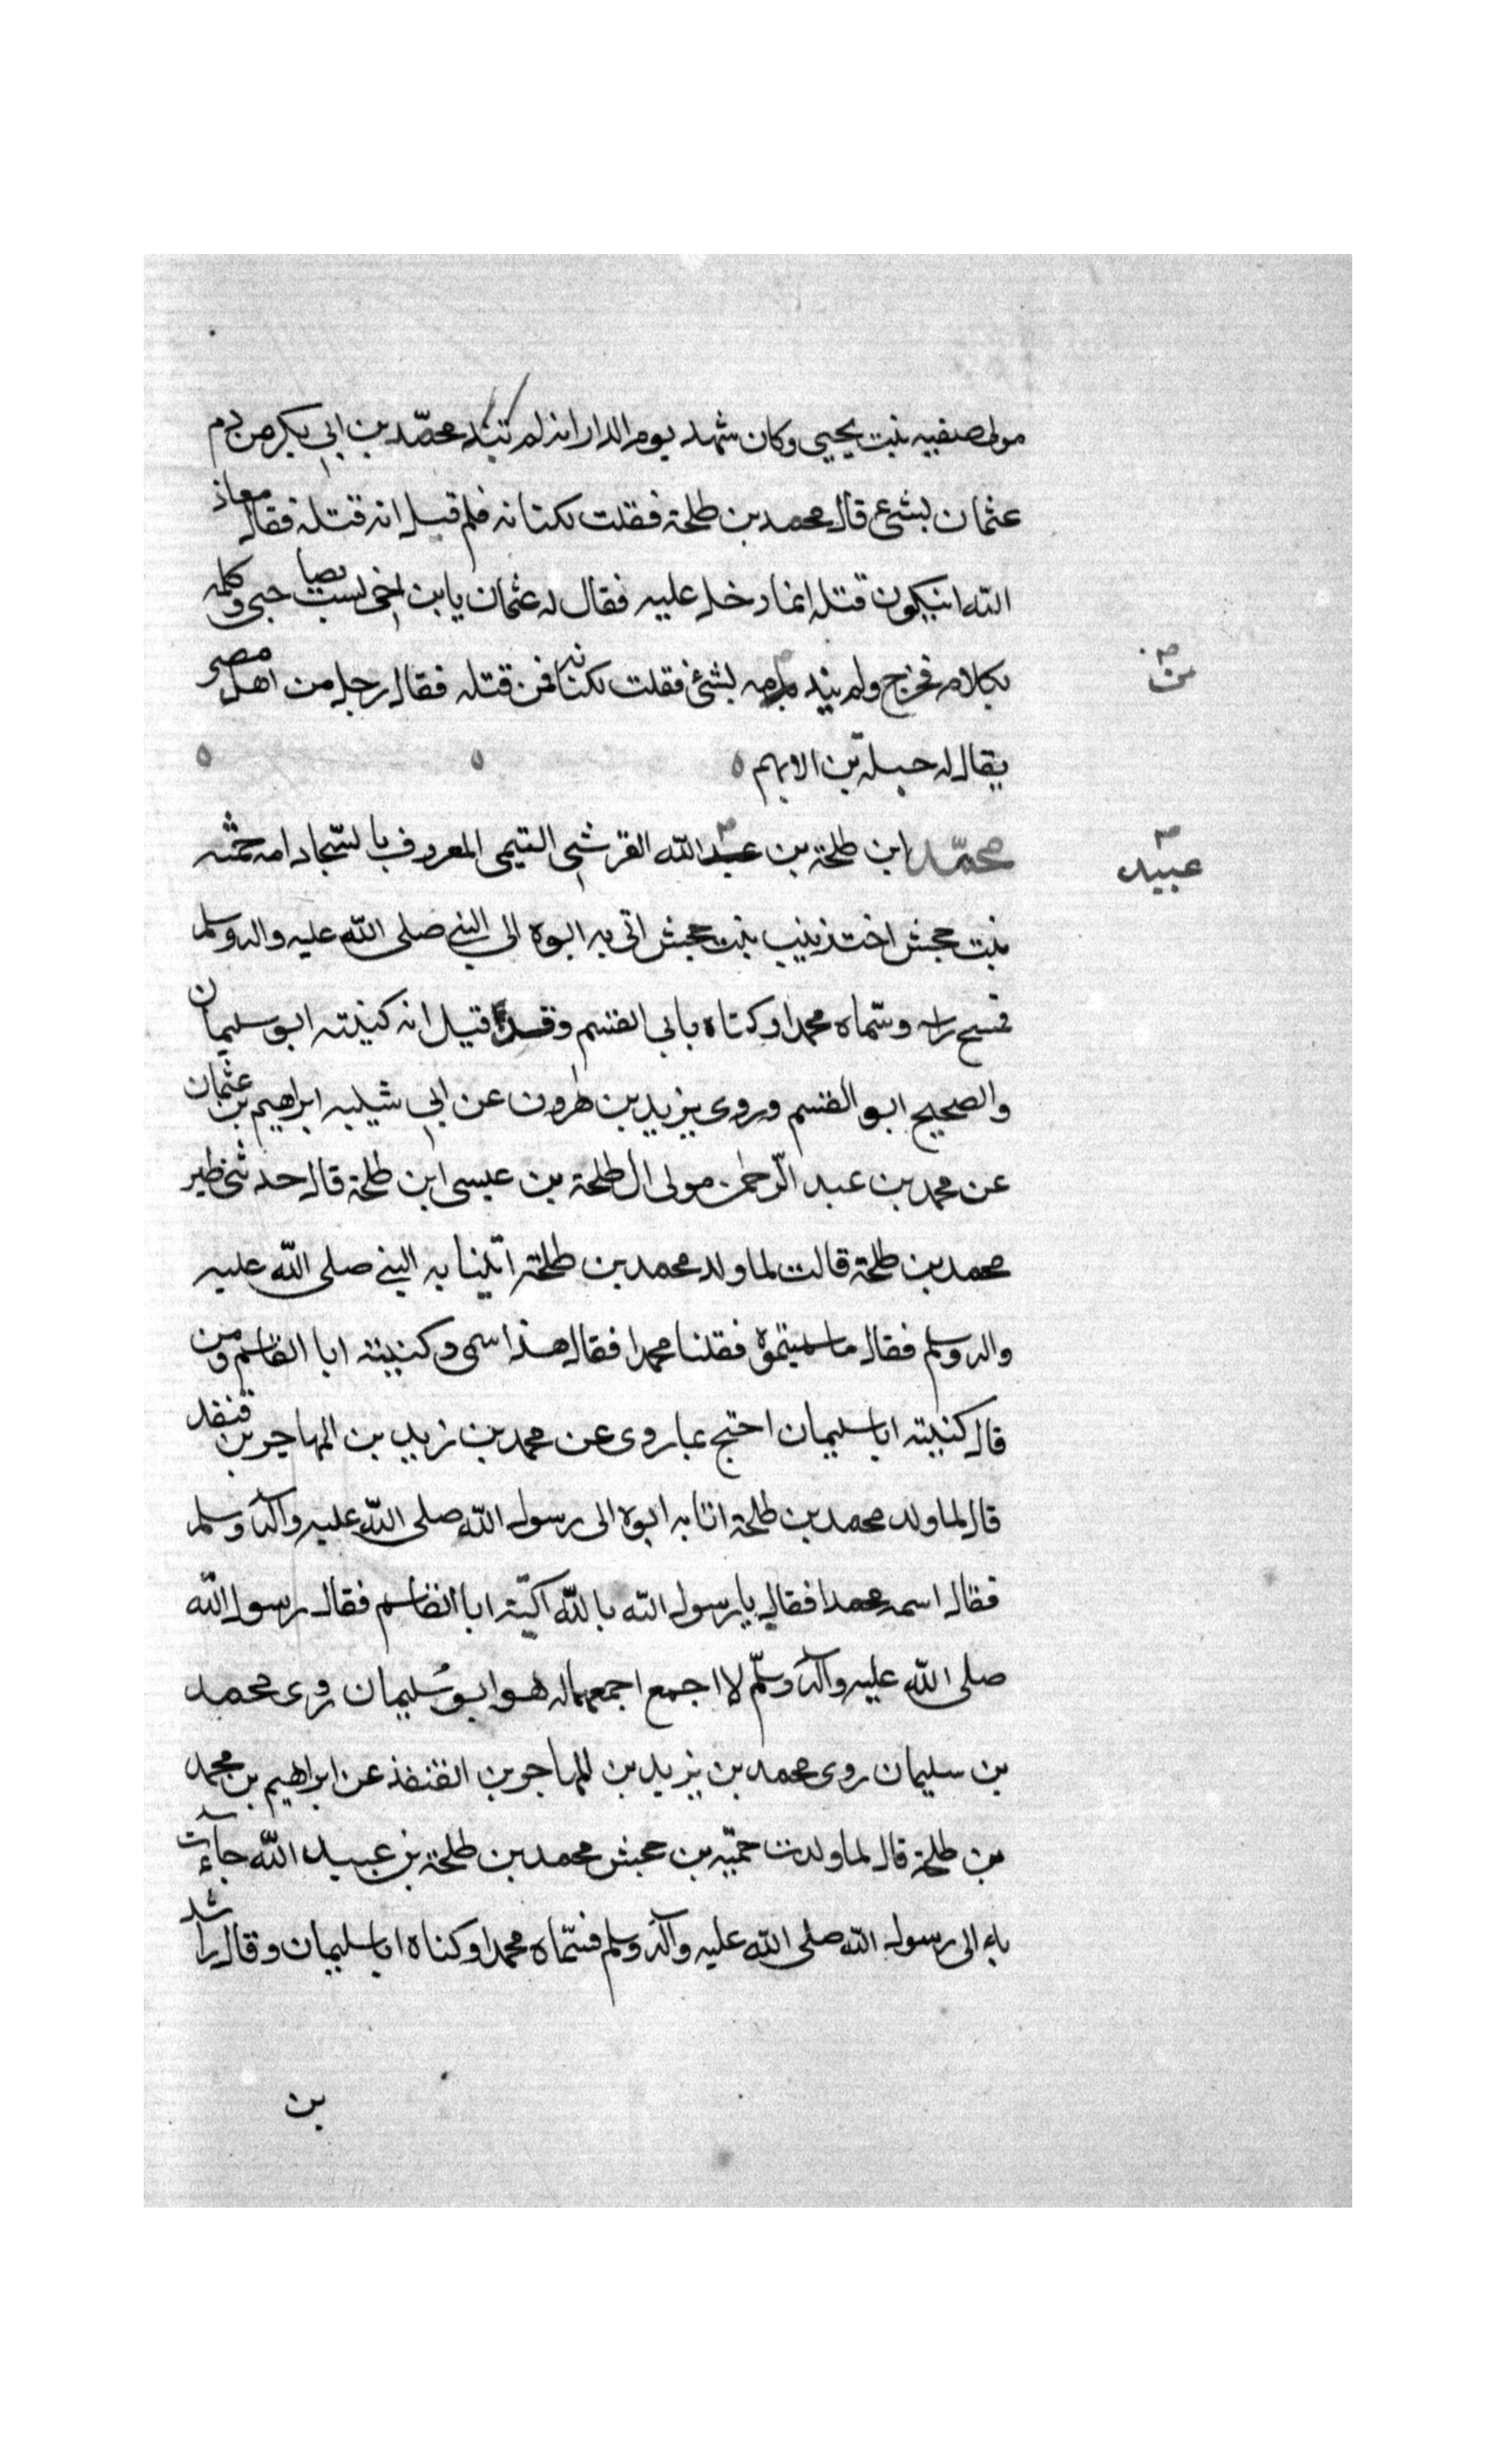 مولى صفيه بنت يحيى وكان شهد يوم الدار انه لم تبد محمّد بن ابي بكر من دم
عثمان بشئ قال محمد بن طلحة فقلت لكنانه فلم قيل انه قتله فقال معاذ
الله ان يكون قتله انما دخل عليه فقال له عثمان يابن اخى لست بصاحبى وكلمه
بكلام فخرج ولم يند دمه بشئ فقلت لكنانه فمن قتله فقال رجل من اهل مصر
من
يقال له جبلة بن الابهم ٥ ٥ ٥
محمّد ابن طلحة بن عبد الله القرشى التيمى المعروف بالسّجاد امه حمنه
عبيد
بنت جحش اخت زينب بنت جحش اتى به ابوه الى النبى صلى الله عليه واله وسلم
فمسح راسه وسمّاه محمدا وكناه بابى القسم وقد قيل انه كنيته ابو سليمان
والصحيح ابو القسم وروى يزيد بن هرون عن ابى شيبه ابراهيم بن عثمان
عن محمد بن عبد الرّحمن مولى ال طلحة بن عيسى ابن طلحة قال حدثنى ظير
محمد بن طلحة قالت لما ولد محمد بن طلحة اتينا به النبى صلى الله عليه
واله وسلم فقال ما سميتموه فقلنا محمدا فقال هذا اسمى وكنيته ابا القاسم ومن
قال كنيته ابا سليمان احتج بما روى عن محمد بن زيد بن المهاجر بن قنفد
قال لما ولد محمد بن طلحة اتا به ابوه الى رسول الله صلى الله عليه وآله وسلم
فقال اسمه محمدا فقال يا رسول الله بالله اكنّيه ابا القاسم فقال رسول الله
صلى الله عليه وآله وسلّم لا اجمع اجمعهما له هو ابو سُليمان روى محمد
بن سليمان روى محمد بن يزيد بن المهاجر بن القنفذ عن ابراهيم بن محمد
بن طلحة قال لما ولدت حمنّه بن جحش محمد بن طلحة بن عبيد الله جآءت
به الى رسول الله صلى الله عليه وآله وسلم فسمّاه محمدا وكناه ابا سليمان وقال راشد
بن